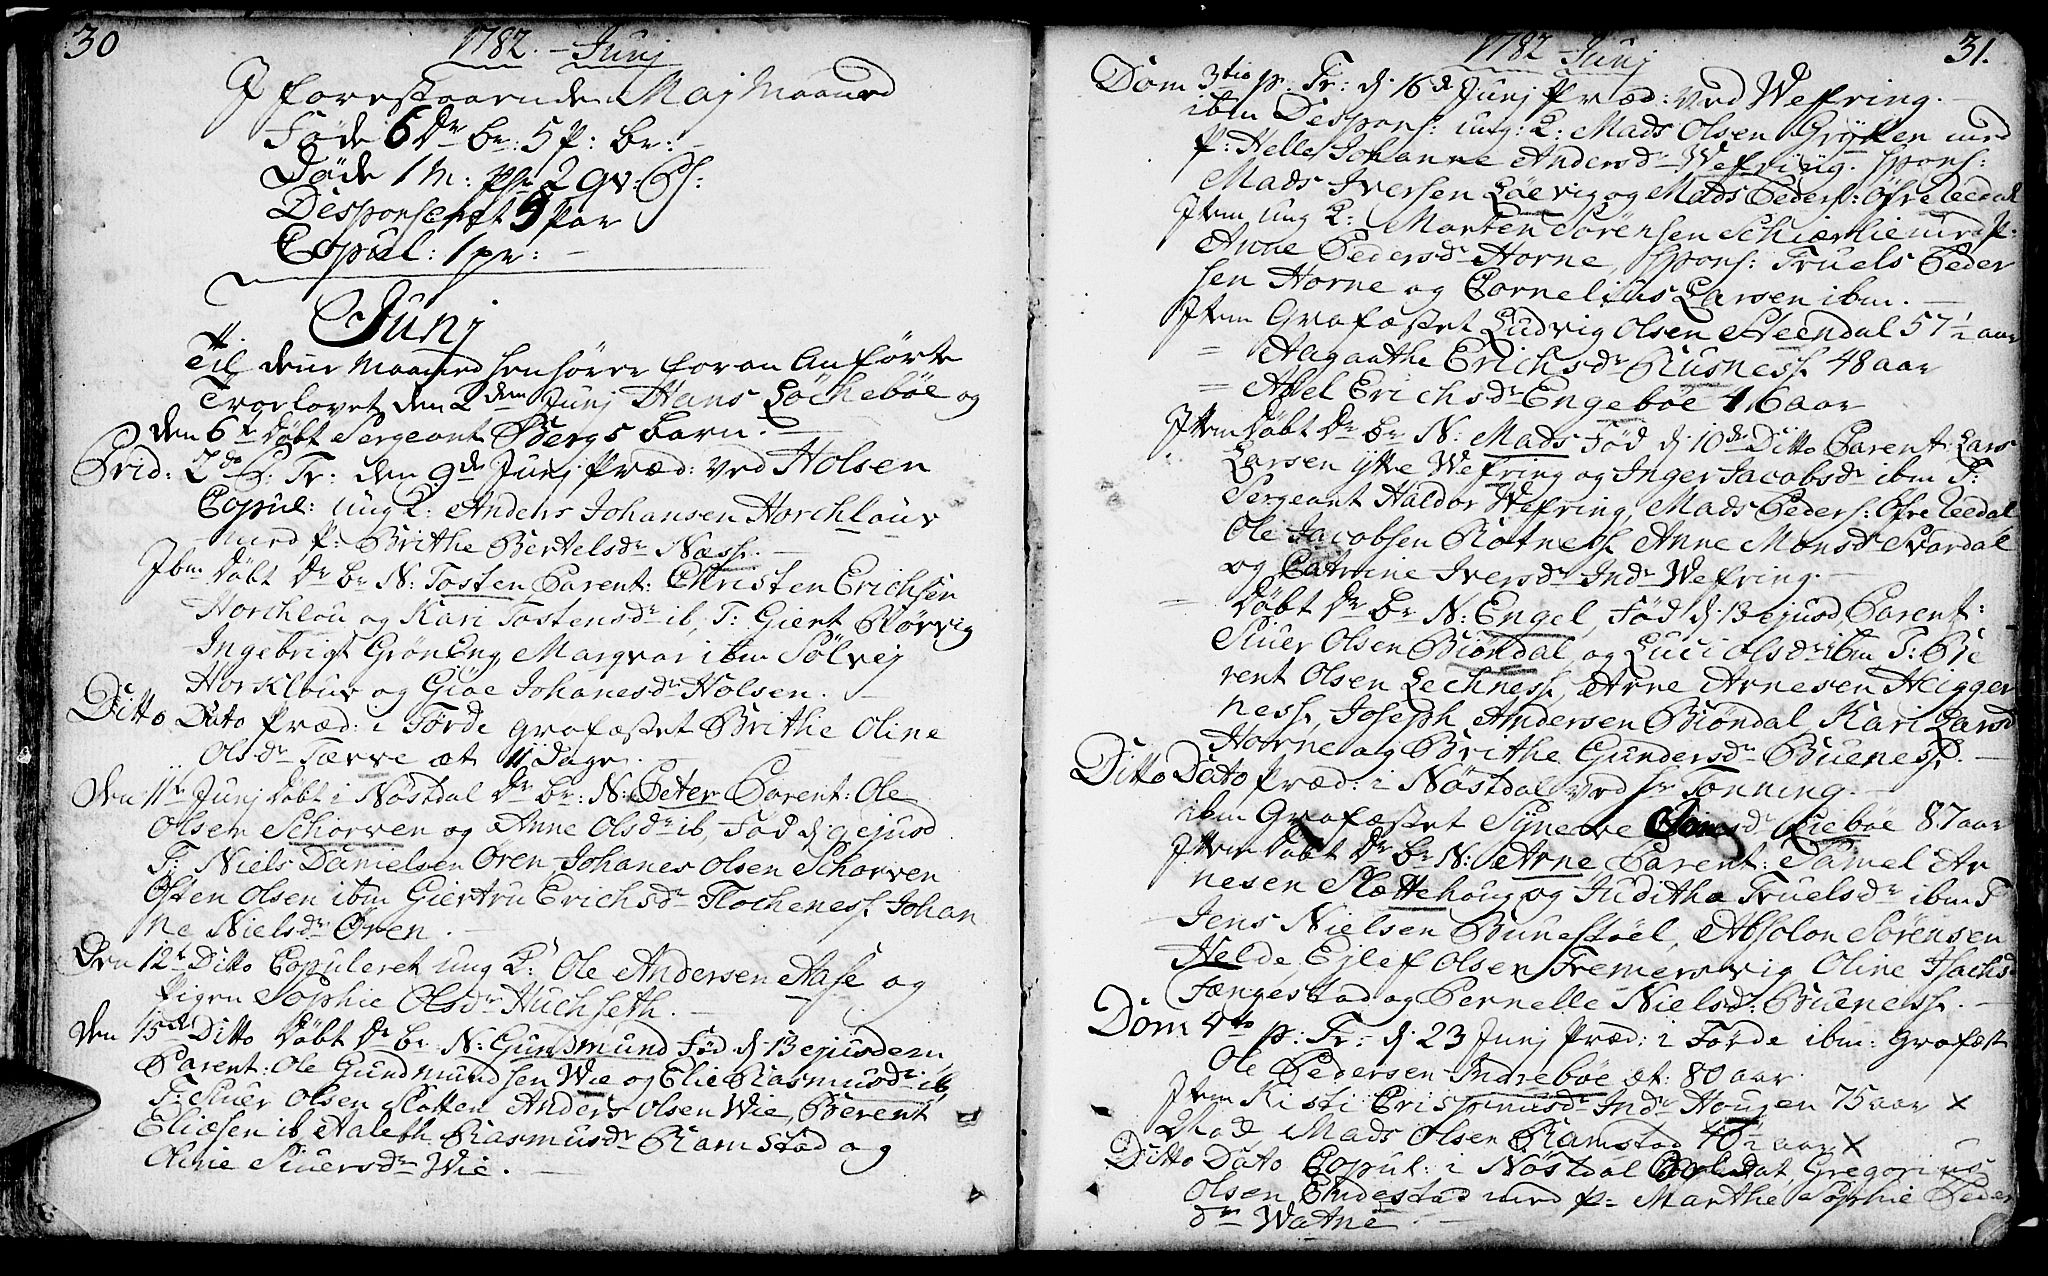 30
1782. - Junj
J forestaaende Maj Maaned
Føde 6 Dr. br: 5 P: br:
Døde 1 M: 2 gv:
Desponseret 5 Par
Copul: 1 pr:
Junj
Til denne Maaned henhører foran Anførte
Troelovet den 2den Junj Hans Løchebøe og
den 6t Døbt Sergeant Bergs barn.
2de Tr: den 9de Junj Præd: ved Holsen
Copul: ung K: Anders Johansen Horchlouv
med P: Brithe Bertelsdr Næss.
Ibm Døbt Dr. br N: Tosten Parent: Christen Erichsen
Horchlou og Kari Tostensdr ib, T: Giert Rørvig
Ingebrigt Grøneng, Marqvar ibm Sølvej
Horklouv og Giøe Johanesdr Holsen.
Ditto Dato Præd: i Førde grafæstet Brithe Oline
Olsdr Tærve æt 11 Dage.
Den 11te Junj Døbt i Nøstdal Dr. br: N: Peter Parent: Ole
Olsen Schorven og Anne Olsdr ib, Fød d: 9 ejusd
T: Niels Danielsen Øren Johanes Olsen Schorven
Østen Olsen ibm Giertru Erichsdr Flocheness Johan
ne Nielsdr Øren.
Den 12t Ditto Copuleret ung K: Ole Andersen Aase og
Pigen Sophie Olsdr Huchseth.
Den 15de Ditto Døbt Dr. br N: Gundmund Fød d: 13 ejusdem
Parent: Ole Gundmundsen Wie og Elie Rasmusdr ib,
T: Siuer Olsen Slotten Anders Olsen Wie, Berent
Eliæsen ib Aleth Rasmusdr Ramstad og
Oline Siuersdr Wie.
1782 - Junj
31.
Dom 3tio p. Tr: d: 16de Junj Præd: ved Wefring.
ibm Despons: ung: K: Mads Olsen Grøften med
P: Helle Johanne Andersdr Wefring. Spons:
Mads Iversen Løevig og Mads Peders: Øfre Leedal
Item ung K: Morten Sørensen Schierlie med P:
Anne Pedersdr Horne, Spons: Truels Peder
sen Horne og Cornelius Larsen ibm.
Item Grafæstet Ludvig Olsen Steendal 57 1/2 aar
= Aagaathe Erichsdr Rusness 48 aar
= Abel Erichsdr Engebøe 16 aar
Item Døbt Dr. br N: Mads Fød d: 10de Ditto Parent: Lars
Larsen ytre Wefring og Inger Jacobsdr ibm T:
Sergeant Haldor Wefring, Mads Peders: Øfre Leedal
Ole Jacobsen Rotness Anne Monsdr Svardal
og Catrine Iversdr Indr Wefring.
= Døbt Dr. br N: Engel, Fød d: 13 ejusd, Parent:
Siuer Olsen Biøndal, og Luci Olsdr ibm T: Be
rent Olsen Lechness, Arne Arnesen Heggen
ness, Joseph Andersen Biøndal Kari Larsd
Horne og Brithe Gundersdr Bueness.
Ditto Dato Præd: i Nøstdal ved Hr Tønning.
ibm Grafæstet Synneve Liebøe 87 aar
Item Døbt Dr. br N: Arne Parent: Samel Ar
nesen Slættehoug og Juditha Truelsdr ibm T
Jens Nielsen Bunestøel, Absolon Sørensen
Helde Ejlef Olsen Fremersvig Oline Isachsd
Tængestad og Pernelle Nielsdr Bueness.
Dom 4to p: Tr: d: 23 Junj Præd: i Førde ibm: Grafæst
Ole Pedersen Indrebøe æt: 80 aar
Item Kisti Crispinusdr Indr Hougen 75 aar x
Mads Olsen Ramstad 40 1/2 aar x
Ditto Dato Copul: i Nøstdal Soldat Gregorius
Olsen Endestad med P: Marthe Sophie Peder
dr Watne